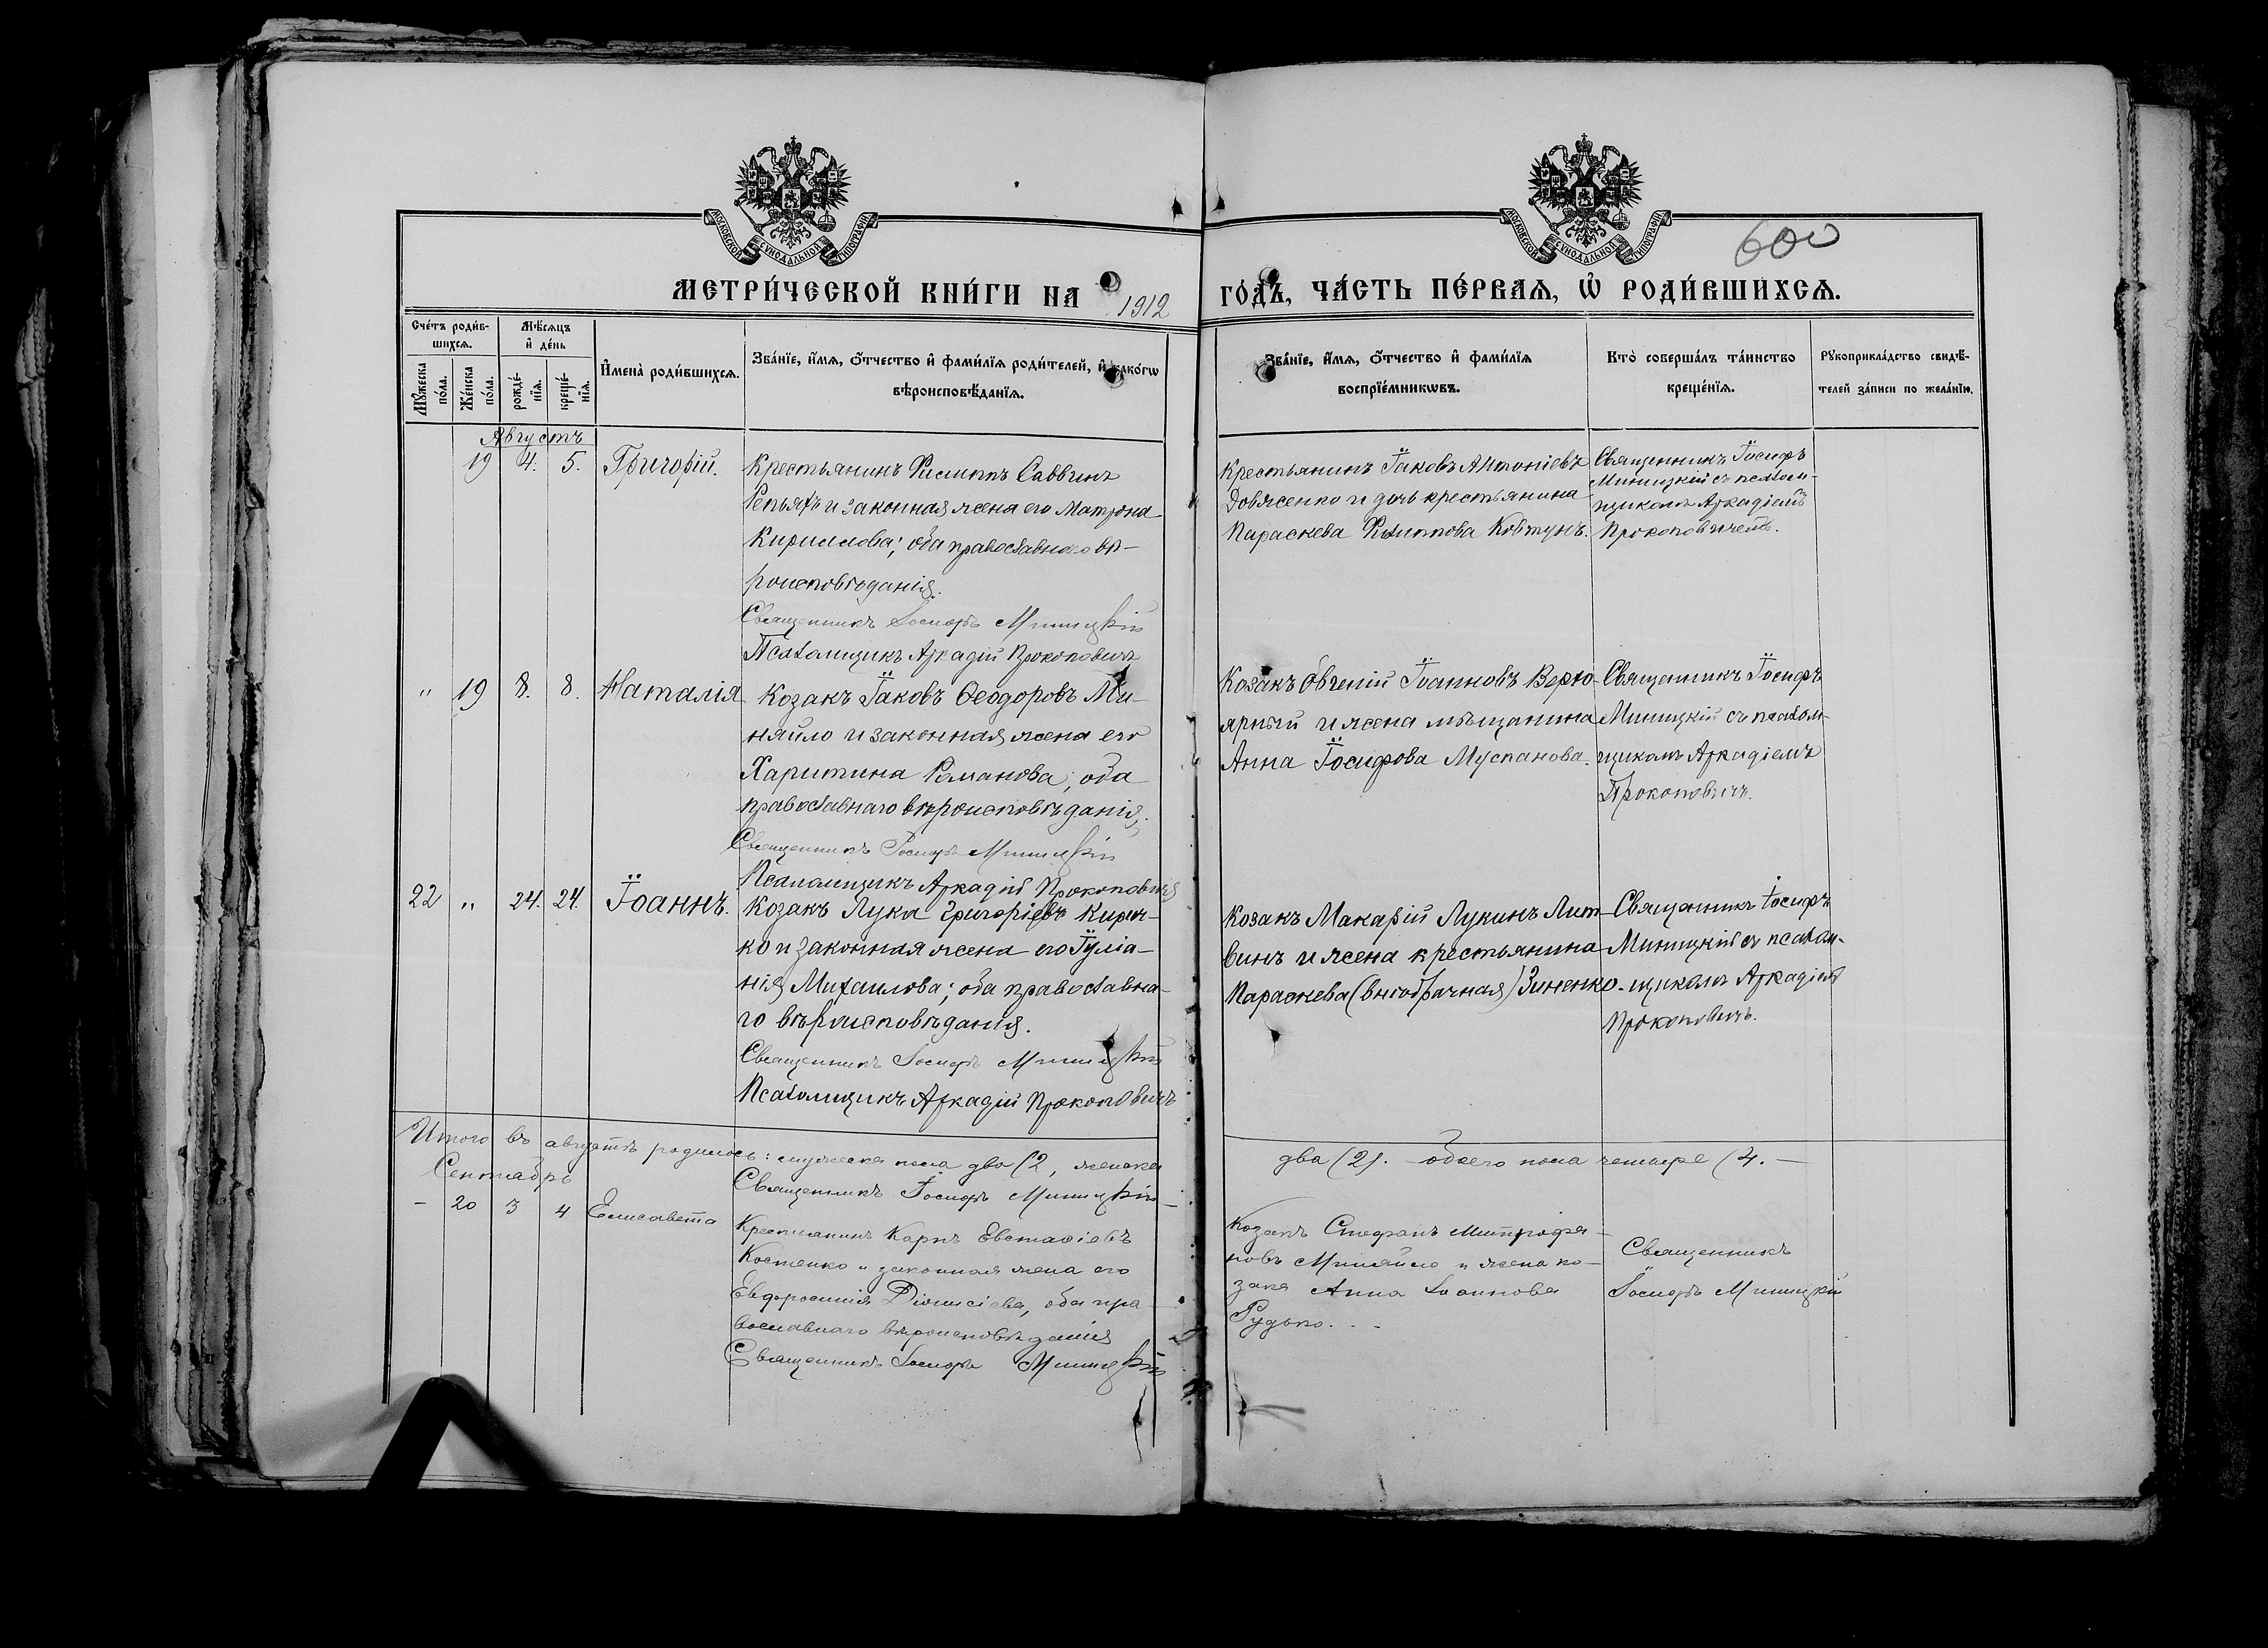 МОСКОВСКОЙ СѴНОДАЛЬНОЙ ТИПОГРАФІИ
МОСКОВСКОЙ СѴНОДАЛЬНОЙ ТИПОГРАФІИ
600
МЕТРИ́ЧЕСКОЙ КНИ́ГИ НА 1912 ГО́ДЪ, ЧА́СТЬ ПЕ́РВАЯ, Ѡ҆ РОДИ́ВШИХСѦ.
Сче́тъ роди́в-
шихсѧ.
Мꙋ́жеска по́ла.
Же́нска по́ла.
Мѣ́сѧцъ
и҆ де́нь
рожде́-
нїѧ.
креще́-
нїѧ.
И҆мена̀ роди́вшихсѧ.
Зва́нїе, и҆́мѧ, ѻ҆́тчество и҆ фами́лїѧ роди́телей, и҆ како́гѡ
вѣроисповѣ́данїѧ.
Зва́нїе, и҆́мѧ, ѻ҆́тчество и҆ фами́лїѧ
воспрїе́мникѡвъ.
Кто̀ соверша́лъ та́инство
креще́нїѧ.
Рꙋкоприкла́дство свидѣ́-
телей за́писи по жела́нїю.
Августъ
19 4. 5. Григорій.
Крестьянинъ Филиппъ Саввинъ
Репьяхъ и законная жена его Матрона
Кириллова; оба православнаго вѣ-
роисповѣданія.
Священникъ Іосифъ Миницкій
Псаломщикъ Аркадій Прокоповичъ
Крестьянинъ Іаковъ Антоніевъ
Довженко и дочь крестьянина
Параскева Филиппова Ковтунъ.
Священникъ Іосифъ
Миницкій съ псалом-
щикомъ Аркадіемъ
Прокоповичемъ.
" 19 8. 8. Наталія
Козакъ Іаковъ Ѳеодоровъ Ми-
няйло и законная жена его
Харитина Романова; оба
православнаго вѣроисповѣданія.
Священникъ Іосифъ Миницкій
Псаломщикъ Аркадій Прокоповичъ
Козакъ Евгеній Іоанновъ Верхо-
ярный и жена мѣщанина
Анна Іосифова Муспанова.
Священникъ Іосифъ
Миницкій съ псалом-
щикомъ Аркадіемъ
Прокоповичъ.
22 " 24. 24. Іоаннъ.
Козакъ Лука Григоріевъ Кирич-
ко и законная жена его Іуліа-
нія Михаилова; оба православна-
го вѣроисповѣданія.
Священникъ Іосифъ Миницкій
Псаломщикъ Аркадій Прокоповичъ
Козакъ Макарій Лукинъ Лит-
винъ и жена крестьянина
Параскева (внѣбрачная) Зиненко
Священникъ Іосифъ
Миницкій съ псалом-
щикомъ Аркадіемъ
Прокоповичъ.
Итого въ августѣ родилось: мужеска пола два (2, женска два (2). обоего пола четыре (4. —
Священникъ Іосифъ Миницкій
Сентябрь
- 20 3 4 Елисавета
Крестьянинъ Карпъ Евстаѳіевъ
Костенко и законная жена его
Евфросинія Діонисіева, оба пра-
вославнаго вѣроисповѣданія
Священникъ Іосифъ Миницкій
Козакъ Стефанъ Митрофа-
новъ Миняйло и жена ко-
зака Анна Іоаннова
Рудько...
Священникъ
Іосифъ Миницкій